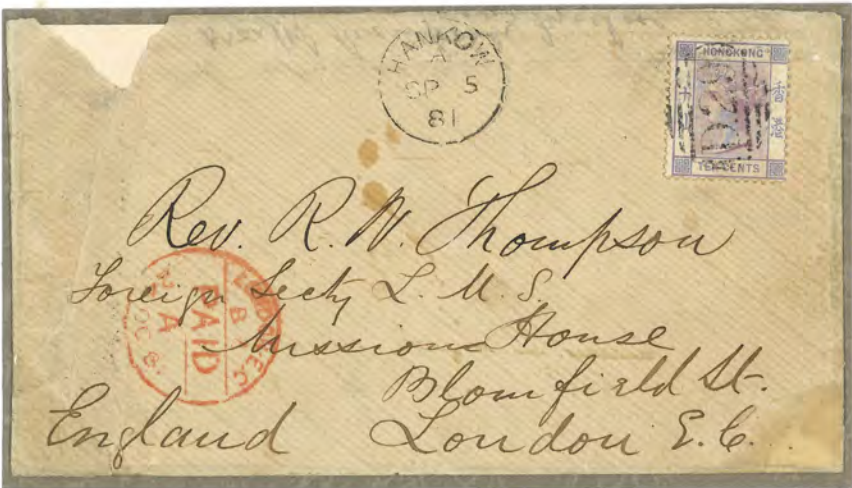 HANKOW
A
SP 5
81
HONGKONG
香港
D29
TEN CENTS
Rev. R. W. Thompson
Foreign Secty L. M. S.
Mission House
Blomfield St.
London E.C.
England
LONDON E.C.
B
PAID
A